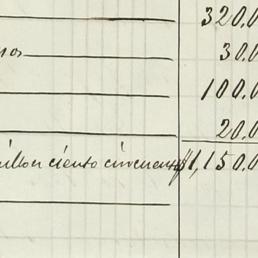 320.0
nos 30.0
100.0
20.0
illon ciento cincuenta $1,150.0